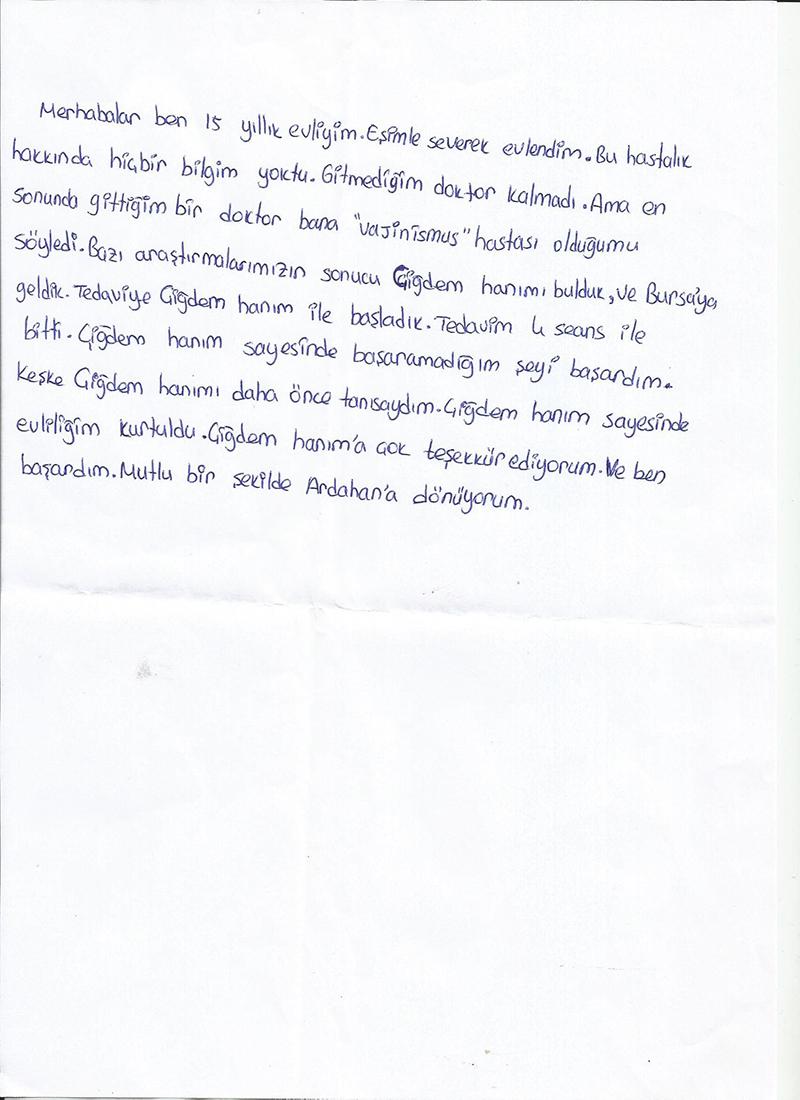 Merhabalar ben 15 yıllık evliyim. Eşimle severek evlendim. Bu hastalık
hakkında hiçbir bilgim yoktu. Gitmediğim doktor kalmadı. Ama en
sonunda gittiğim bir doktor bana "vajinismus" hastası olduğumu
söyledi. Bazı araştırmalarımızın sonucu Çiğdem hanımı bulduk, ve Bursa'ya
geldik. Tedaviye Çiğdem hanım ile başladık. Tedavim 4 seans ile
bitti. Çiğdem hanım sayesinde başaramadığım şeyi başardım.
Keşke Çiğdem hanımı daha önce tanısaydım. Çiğdem hanım sayesinde
evliliğim kurtuldu. Çiğdem hanım'a çok teşekkür ediyorum. Ve ben
başardım. Mutlu bir şekilde Ardahan'a dönüyorum.